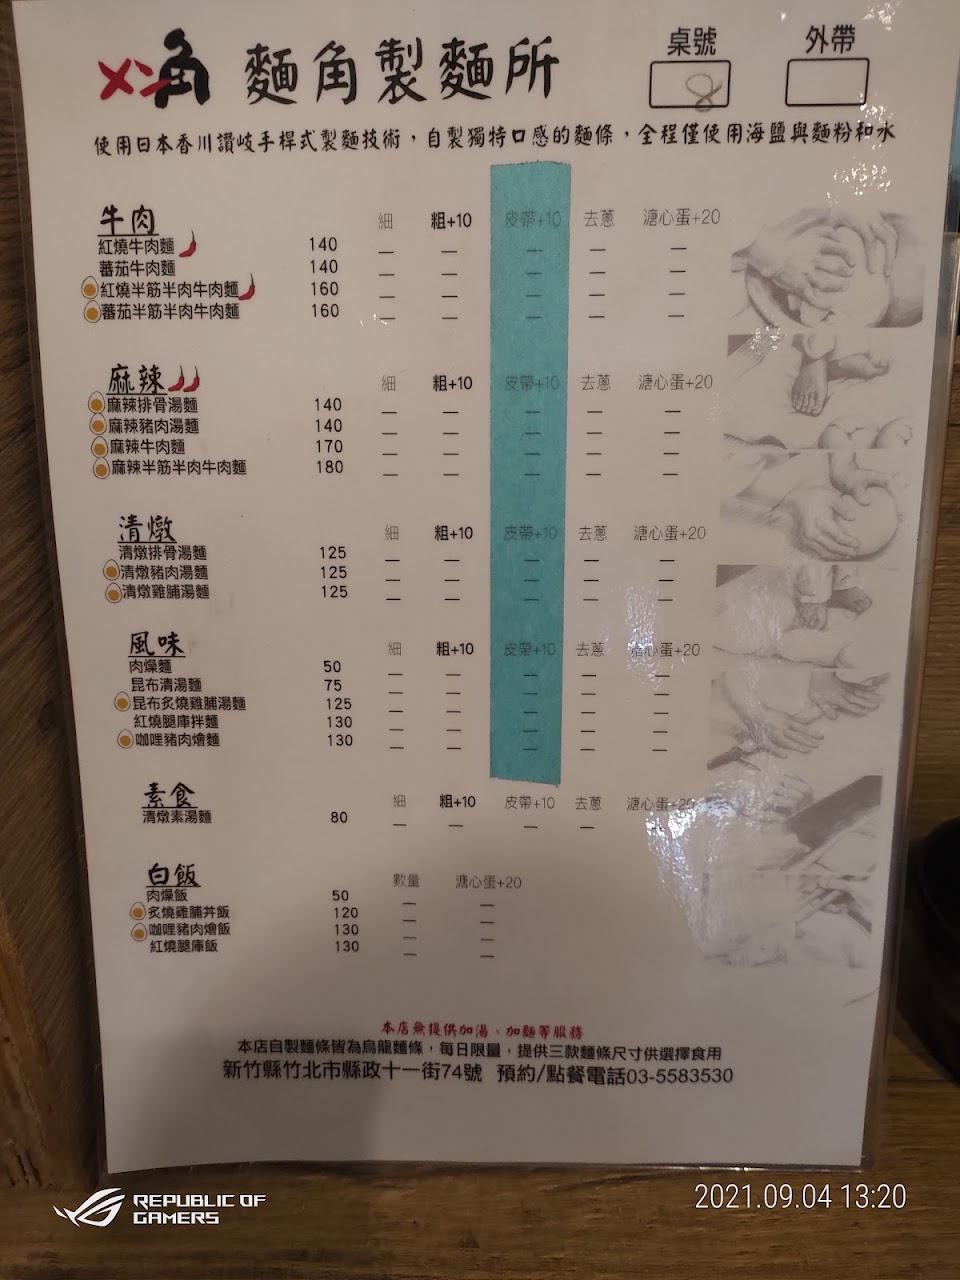 メン角 麵角製麵所
桌號 外帶
8
使用日本香川讚岐手桿式製麵技術，自製獨特口感的麵條，全程僅使用海鹽與麵粉和水
牛肉 細 粗+10 皮帶+10 去蔥 溏心蛋+20
紅燒牛肉麵 140
蕃茄牛肉麵 140
紅燒半筋半肉牛肉麵 160
蕃茄半筋半肉牛肉麵 160
麻辣 細 粗+10 皮帶+10 去蔥 溏心蛋+20
麻辣排骨湯麵 140
麻辣豬肉湯麵 140
麻辣牛肉麵 170
麻辣半筋半肉牛肉麵 180
清燉 細 粗+10 皮帶+10 去蔥 溏心蛋+20
清燉排骨湯麵 125
清燉豬肉湯麵 125
清燉雞脯湯麵 125
風味 細 粗+10 皮帶+10 去蔥 溏心蛋+20
肉燥麵 50
昆布清湯麵 75
昆布炙燒雞脯湯麵 125
紅燒腿庫拌麵 130
咖哩豬肉燴麵 130
素食 細 粗+10 皮帶+10 去蔥 溏心蛋+20
清燉素湯麵 80
白飯 數量 溏心蛋+20
肉燥飯 50
炙燒雞脯丼飯 120
咖哩豬肉燴飯 130
紅燒腿庫飯 130
本店無提供加湯、加麵等服務
本店自製麵條皆為烏龍麵條，每日限量，提供三款麵條尺寸供選擇食用
新竹縣竹北市縣政十一街74號 預約/點餐電話03-5583530
REPUBLIC OF
GAMERS
2021.09.04 13:20